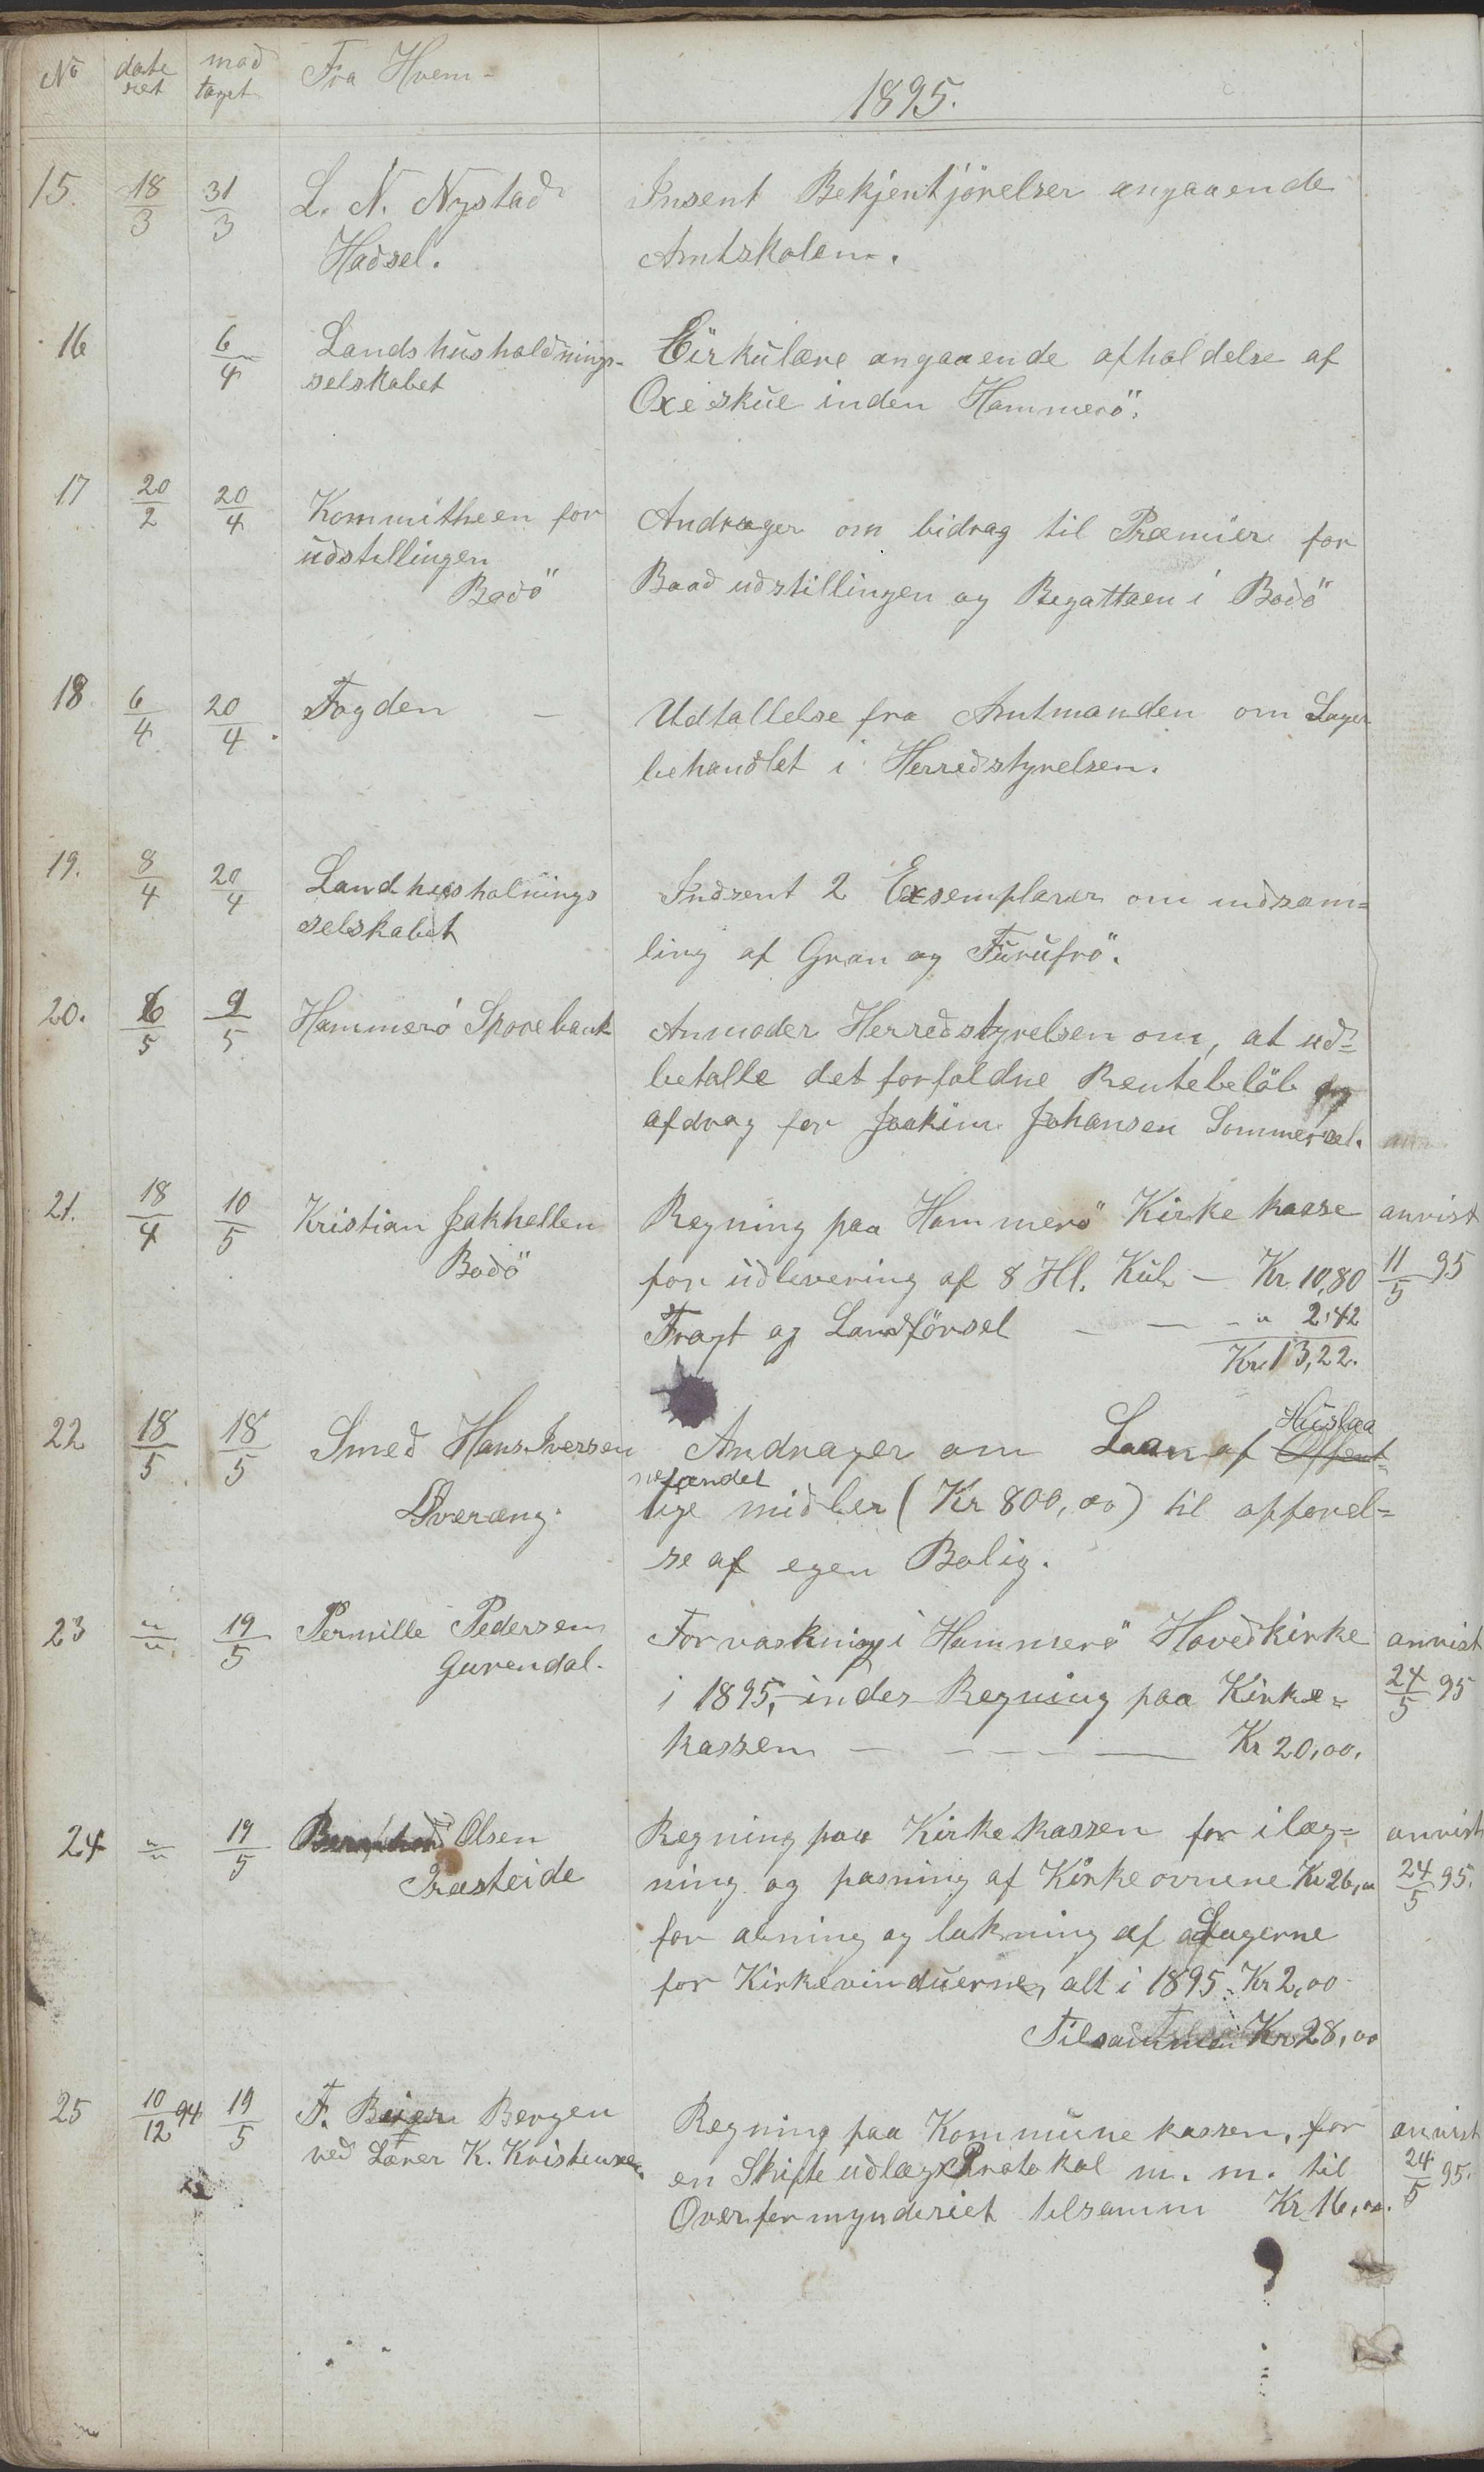 No date ret mod taget Fra Hvem - 1895.
15. 18/3 31/3 L. N. Nystad Insent Bekjentjörelser angaaende
Hadsel. Amtskolen.
16 6/4 Landshusholdnings- Cirkulære angaaende afholdelse af
selskabet Oxeskue inden Hammerö.
17 20/2 20/4 Kommitheen for Andrager om bidrag til Præmier for
udstillingen Baadudstillingen og Regattaen i Bodö
Bodö
18 6/4 20/4. Fogden - Udtallelse fra Amtmanden om Sager
behandlet i Herredstyrelsen.
19. 8/4 20/4 Landhusholnings Indsent 2 Exsemplarer om indsam=
selskabet ling af Gran og Furufrö.
20. 6/5 9/5 Hammerö Sparebank Anmoder Herredstyrelsen om, at ud=
betalle det forfaldne Rentebelöb og
afdrag for Joakim Johansen Sommersel.
21. 18/4 10/5 Kristian Jakhellen Regning paa Hammerö Kirkekasse anvist
Bodö for udlevering af 8 Hl. Kul - Kr 10,80 11/5 95
Fragt og Landförsel - — - " 2,42
Kr. 13,22.
22 18/5 18/5 Smed Hans Iversen Andrager om Laan af Offent= Huslaa
nefondet
Överæng. lige midler (Kr 800,00) til opförel=
se af egen Bolig.
23 "/" 19/5 Pernille Pedersen For vaskning i Hammerö Hovedkirke anvist
i 1895, indes Regning paa Kirke= 24/5 95
kassen — - - - — Kr 20,00.
24 "/" 19/5 Olsen Regning paa Kirkekassen for ilæg= anvist
Præsteide ning og pasning af Kirkeovnene Kr 26,„ 24/5 95.
for abning og lukning af Lugerne
for Kirkevinduerne, alt i 1895. Kr 2,00
Tilsammen Kr 28,00
25 10/12 94 19/5 F. Beijer Bergen Regning paa Kommunekassen, for anvist
ved Lærer K. Kristensen en Skifte udlægs Protokol m. m. til 24/5 95.
Overformynderiet tilsamm Kr 16,00.